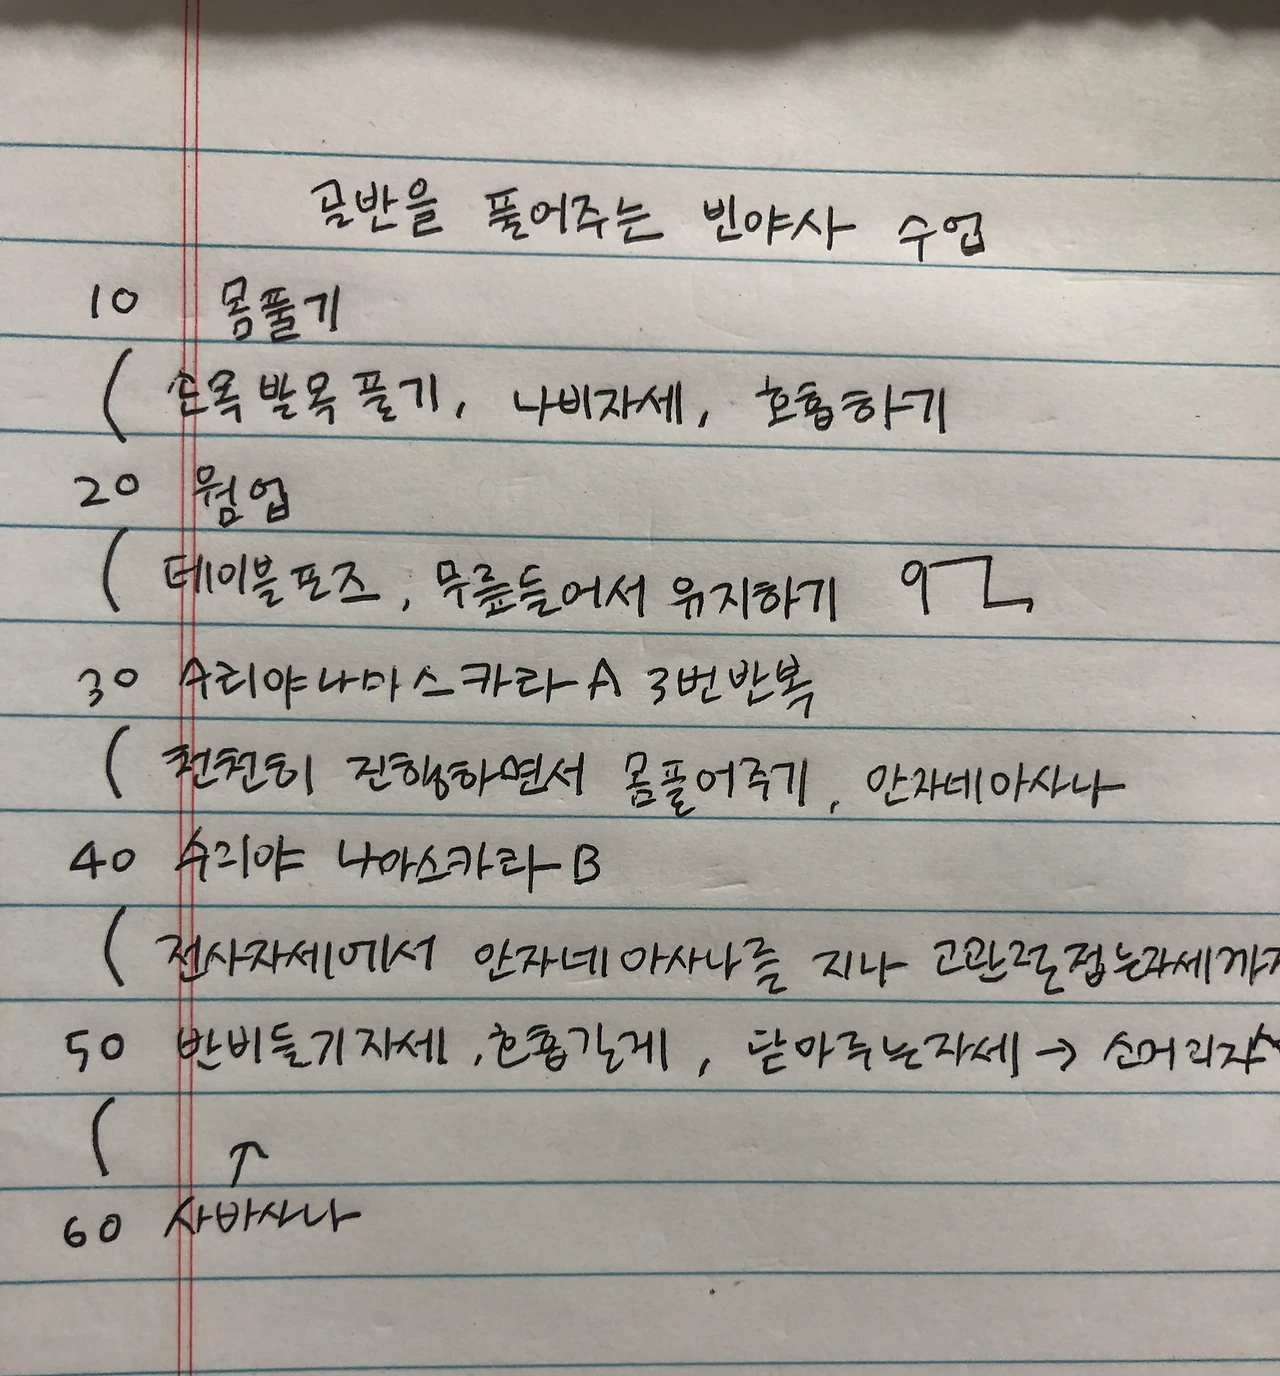 골반을 풀어주는 빈야사 수업
10 몸풀기
( 손목발목 풀기, 나비자세, 호흡하기
20 웜업
( 테이블포즈, 무릎들어서 유지하기
30 수리야나마스카라 A 3번반복
( 천천히 진행하면서 몸풀어주기, 안자네아사나
40 수리야 나마스카라 B
( 전사자세에서 안자네아사나를 지나 고관절접는자세까지
50 반비둘기자세, 호흡길게, 닫아주는자세 → 소머리자
( ↑
60 사바사나